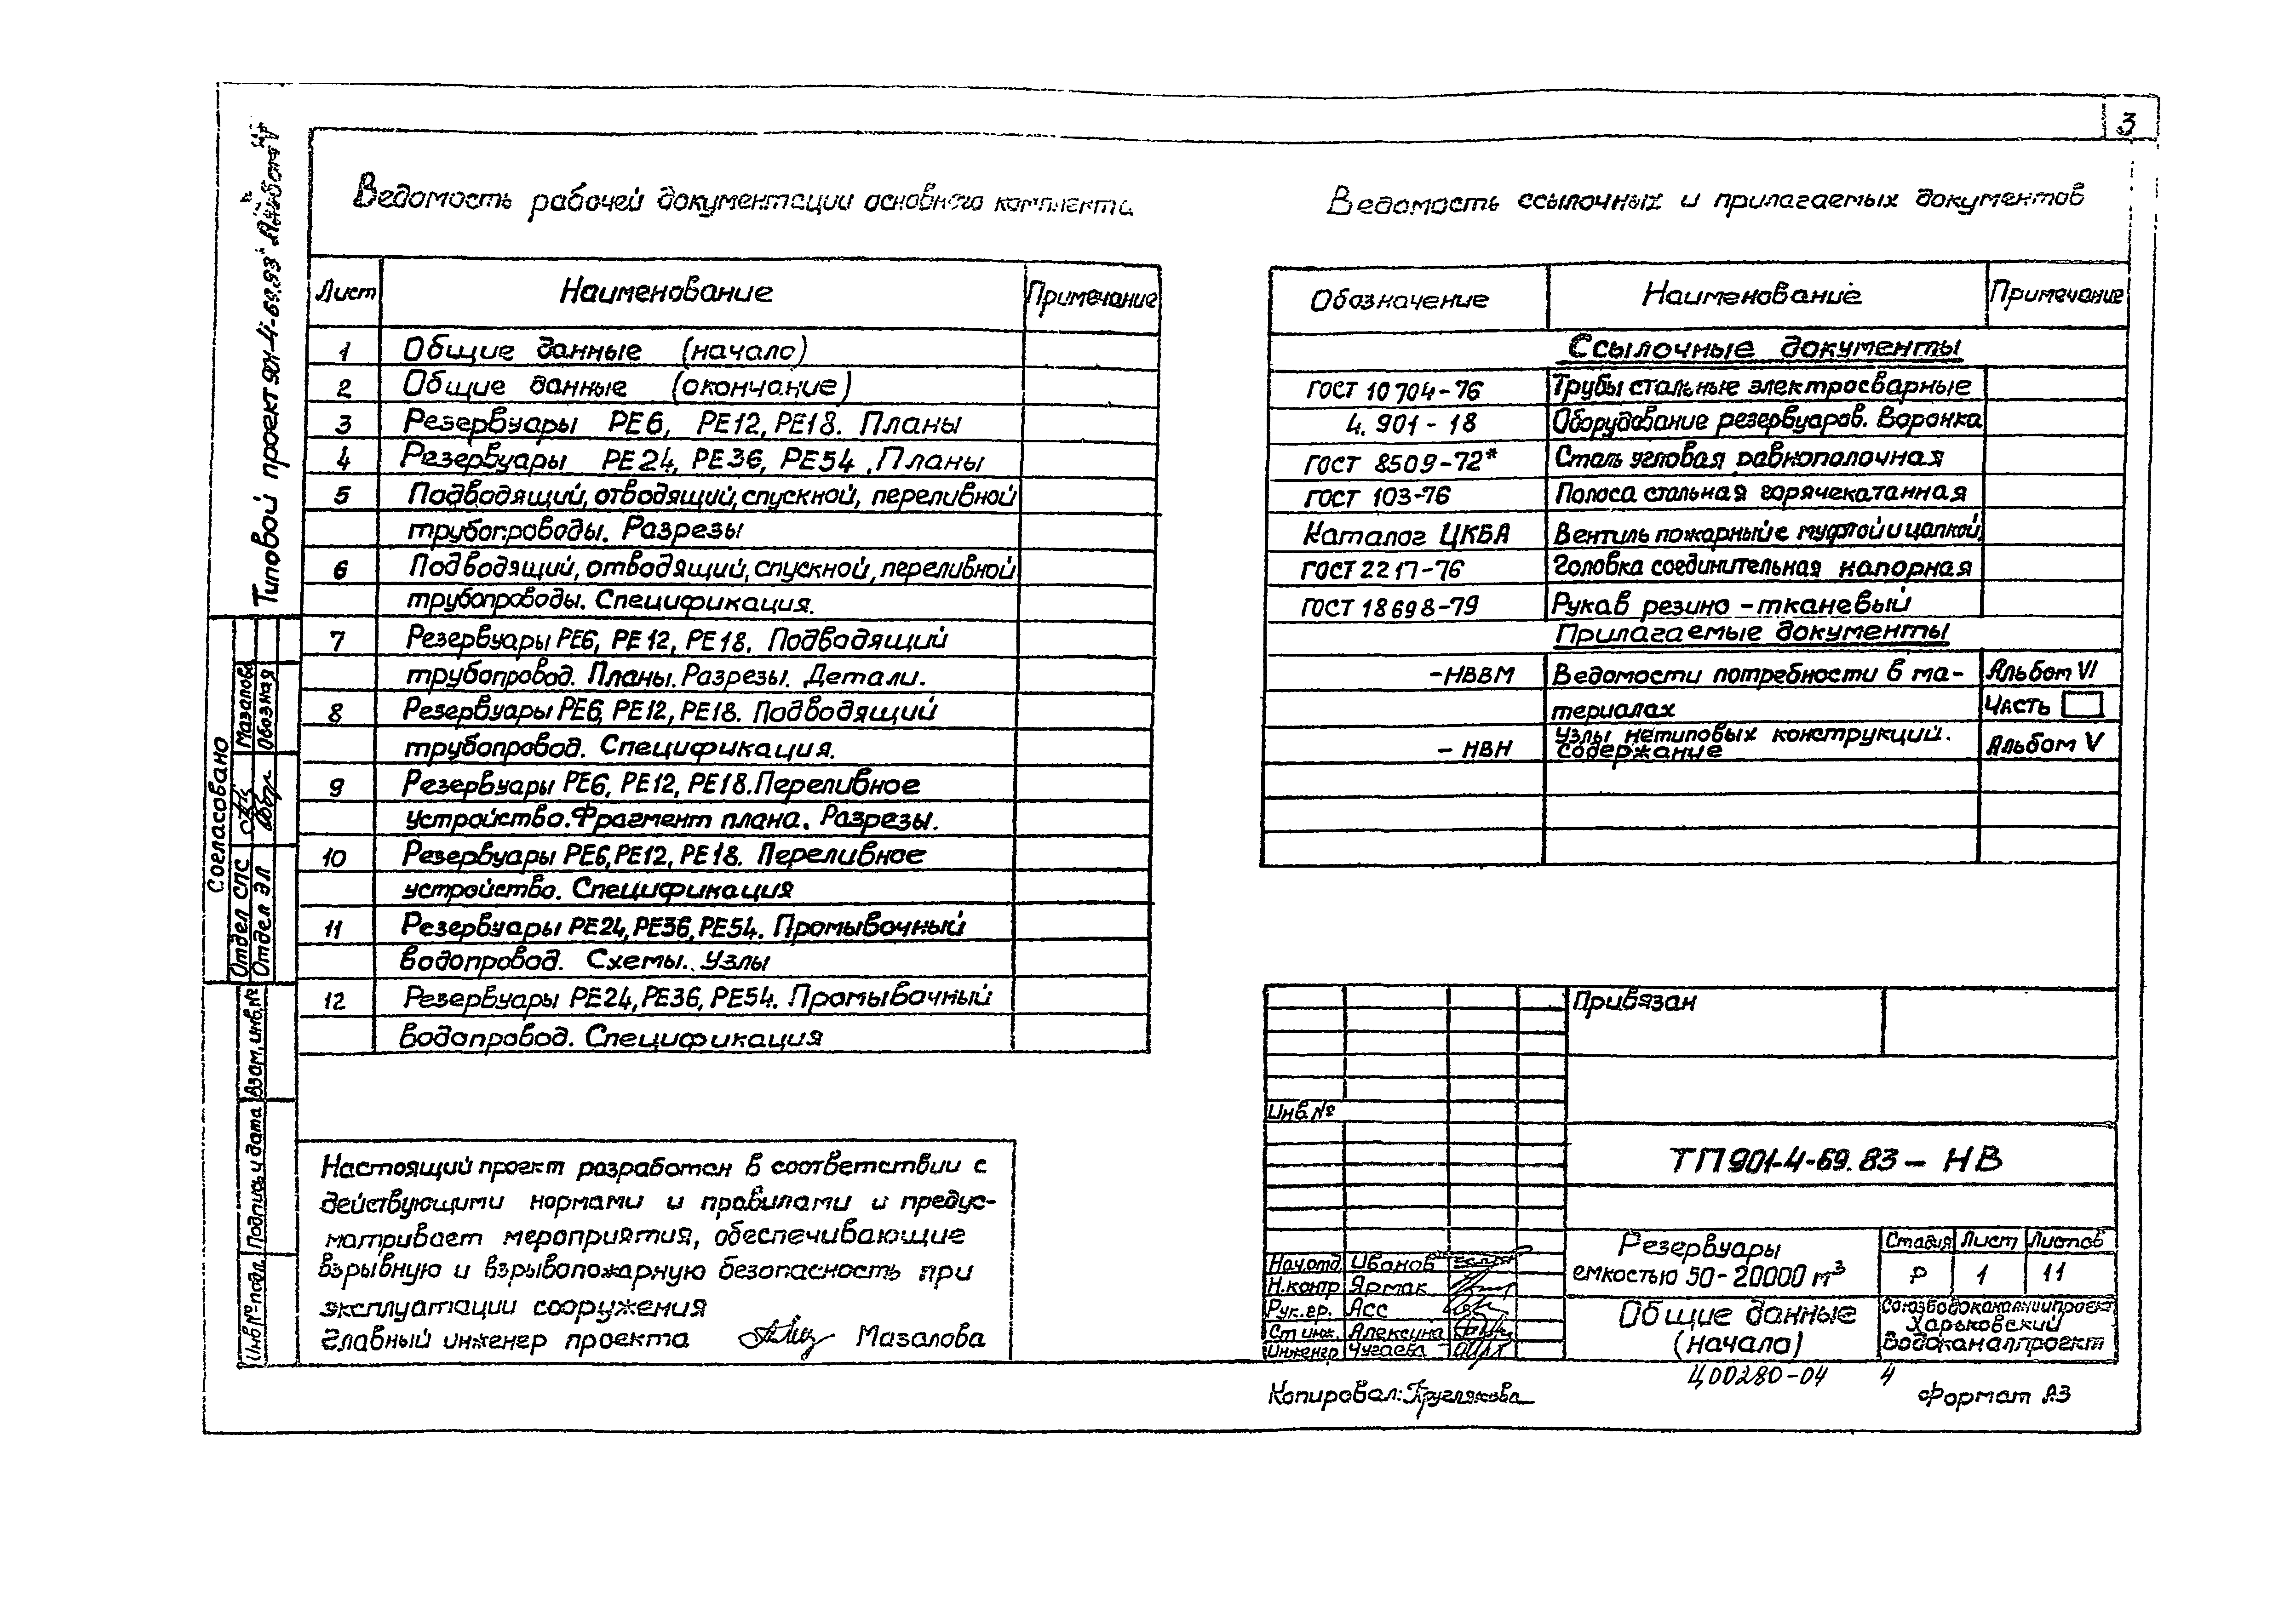 3
Типовой проект 901-4-69.83 Альбом
Ведомость рабочей документации основного комплекта
Лист Наименование Примечание
1 Общие данные (начало)
2 Общие данные (окончание)
3 Резервуары РЕ6, РЕ12, РЕ18. Планы
4 Резервуары РЕ24, РЕ36, РЕ54. Планы
5 Подводящий, отводящий, спускной, переливной
трубопроводы. Разрезы
6 Подводящий, отводящий, спускной, переливной
трубопроводы. Спецификация.
7 Резервуары РЕ6, РЕ12, РЕ18. Подводящий
трубопровод. Планы. Разрезы. Детали.
8 Резервуары РЕ6, РЕ12, РЕ18. Подводящий
трубопровод. Спецификация.
9 Резервуары РЕ6, РЕ12, РЕ18. Переливное
устройство. Фрагмент плана. Разрезы.
10 Резервуары РЕ6, РЕ12, РЕ18. Переливное
устройство. Спецификация
11 Резервуары РЕ24, РЕ36, РЕ54. Промывочный
водопровод. Схемы. Узлы
12 Резервуары РЕ24, РЕ36, РЕ54. Промывочный
водопровод. Спецификация
Настоящий проект разработан в соответствии с
действующими нормами и правилами и предус-
матривает мероприятия, обеспечивающие
взрывную и взрывопожарную безопасность при
эксплуатации сооружения
Главный инженер проекта Мазалова
Ведомость ссылочных и прилагаемых документов
Обозначение Наименование Примечание
Ссылочные документы
ГОСТ 10704-76 Трубы стальные электросварные
4.901-18 Оборудование резервуаров. Воронка
ГОСТ 8509-72* Сталь угловая равнополочная
ГОСТ 103-76 Полоса стальная горячекатанная
Каталог ЦКБА Вентиль пожарный с муфтой и цапкой
ГОСТ 2217-76 Головка соединительная напорная
ГОСТ 18698-79 Рукав резино-тканевый
Прилагаемые документы
-НВВМ Ведомости потребности в ма- Альбом VI
териалах Часть
-НВН Узлы нетиповых конструкций. Содержание Альбом V
Привязан
Инв.№
ТП 901-4-69.83-НВ
Нач.отд. Иванов
Н.контр Ярмак
Рук.гр. Асс
Ст.инж. Алексина
Инженер Чугаева
Резервуары
емкостью 50-20000 м³
Стадия Лист Листов
Р 1 11
Общие данные
(начало)
Союзводоканалниипроект
Харьковский
Водоканалпроект
Копировал: Круглякова
Ц00280-04 4
Формат А3
Согласовано
Отдел СПС Мазалова
Отдел ЭЛ Обозная
Взам.инв.№
Подпись и дата
Инв.№ подл.